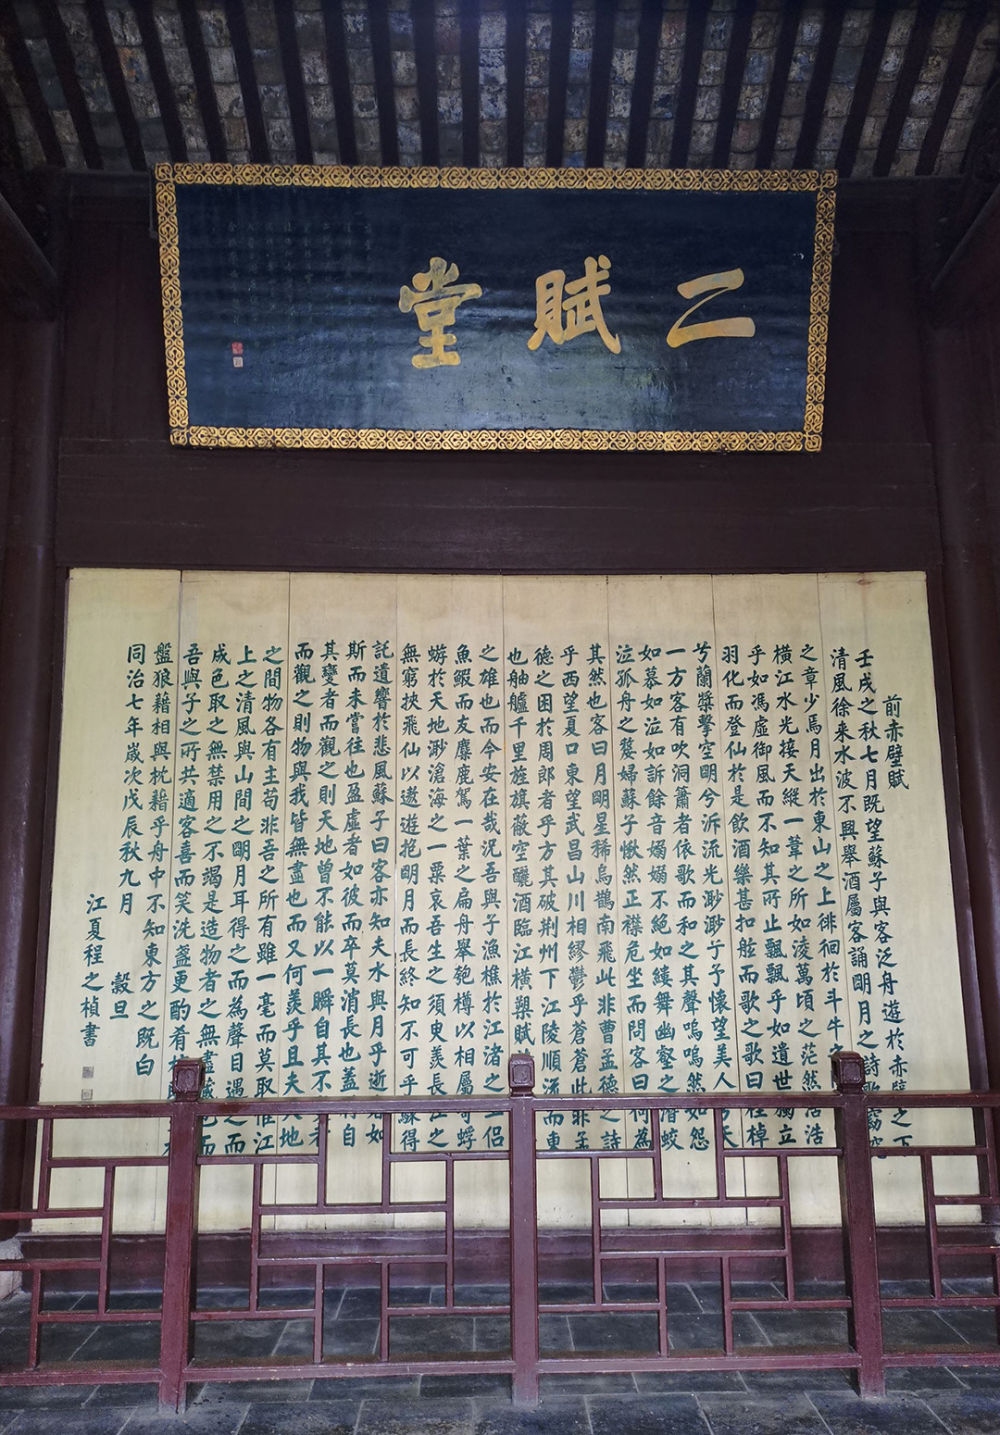 二賦堂
前赤壁賦
壬戌之秋七月既望蘇子與客泛舟遊於赤壁之下
清風徐來水波不興舉酒屬客誦明月之詩歌窈窕
之章少焉月出於東山之上徘徊於斗牛
橫江水光接天縱一葦之所如淩萬頃之茫然浩浩
乎如馮虛御風而不知其所止飄飄乎如遺世獨立
羽化而登仙於是飲酒樂甚扣舷而歌之歌曰桂棹
兮蘭槳擊空明兮泝流光渺渺于予懷望美人兮天
一方客有吹洞簫者依歌而和之其聲嗚嗚然如怨
如慕如泣如訴餘音嫋嫋不絕如縷舞幽壑之潛蛟
泣孤舟之嫠婦蘇子愀然正襟危坐而問客曰何為
其然也客曰月明星稀烏鵲南飛此非曹孟德之詩
乎西望夏口東望武昌山川相繆鬱乎蒼蒼此非孟
德之困於周郎者乎方其破荊州下江陵順流而東
也舳艫千里旌旗蔽空釃酒臨江橫槊賦
之雄也而今安在哉況吾與子漁樵於江渚之上侶
魚鰕而友麋鹿駕一葉之扁舟舉匏樽以相屬寄蜉
蝣於天地渺滄海之一粟哀吾生之須臾羨長江之
無窮挾飛仙以遨遊抱明月而長終知不可乎驟得
託遺響於悲風蘇子曰客亦知夫水與月乎逝者如
斯而未嘗往也盈虛者如彼而卒莫消長也蓋將自
其變者而觀之則天地曾不能以一瞬自其不變者
而觀之則物與我皆無盡也而又何羨乎且夫天地
之間物各有主苟非吾之所有雖一毫而莫取惟江
上之清風與山間之明月耳得之而為聲目遇之而
成色取之無禁用之不竭是造物者之無盡藏也而
吾與子之所共適客喜而笑洗盞更酌肴核既盡杯
盤狼藉相與枕藉乎舟中不知東方之既白
同治七年歲次戊辰秋九月 穀旦
江夏程之楨書